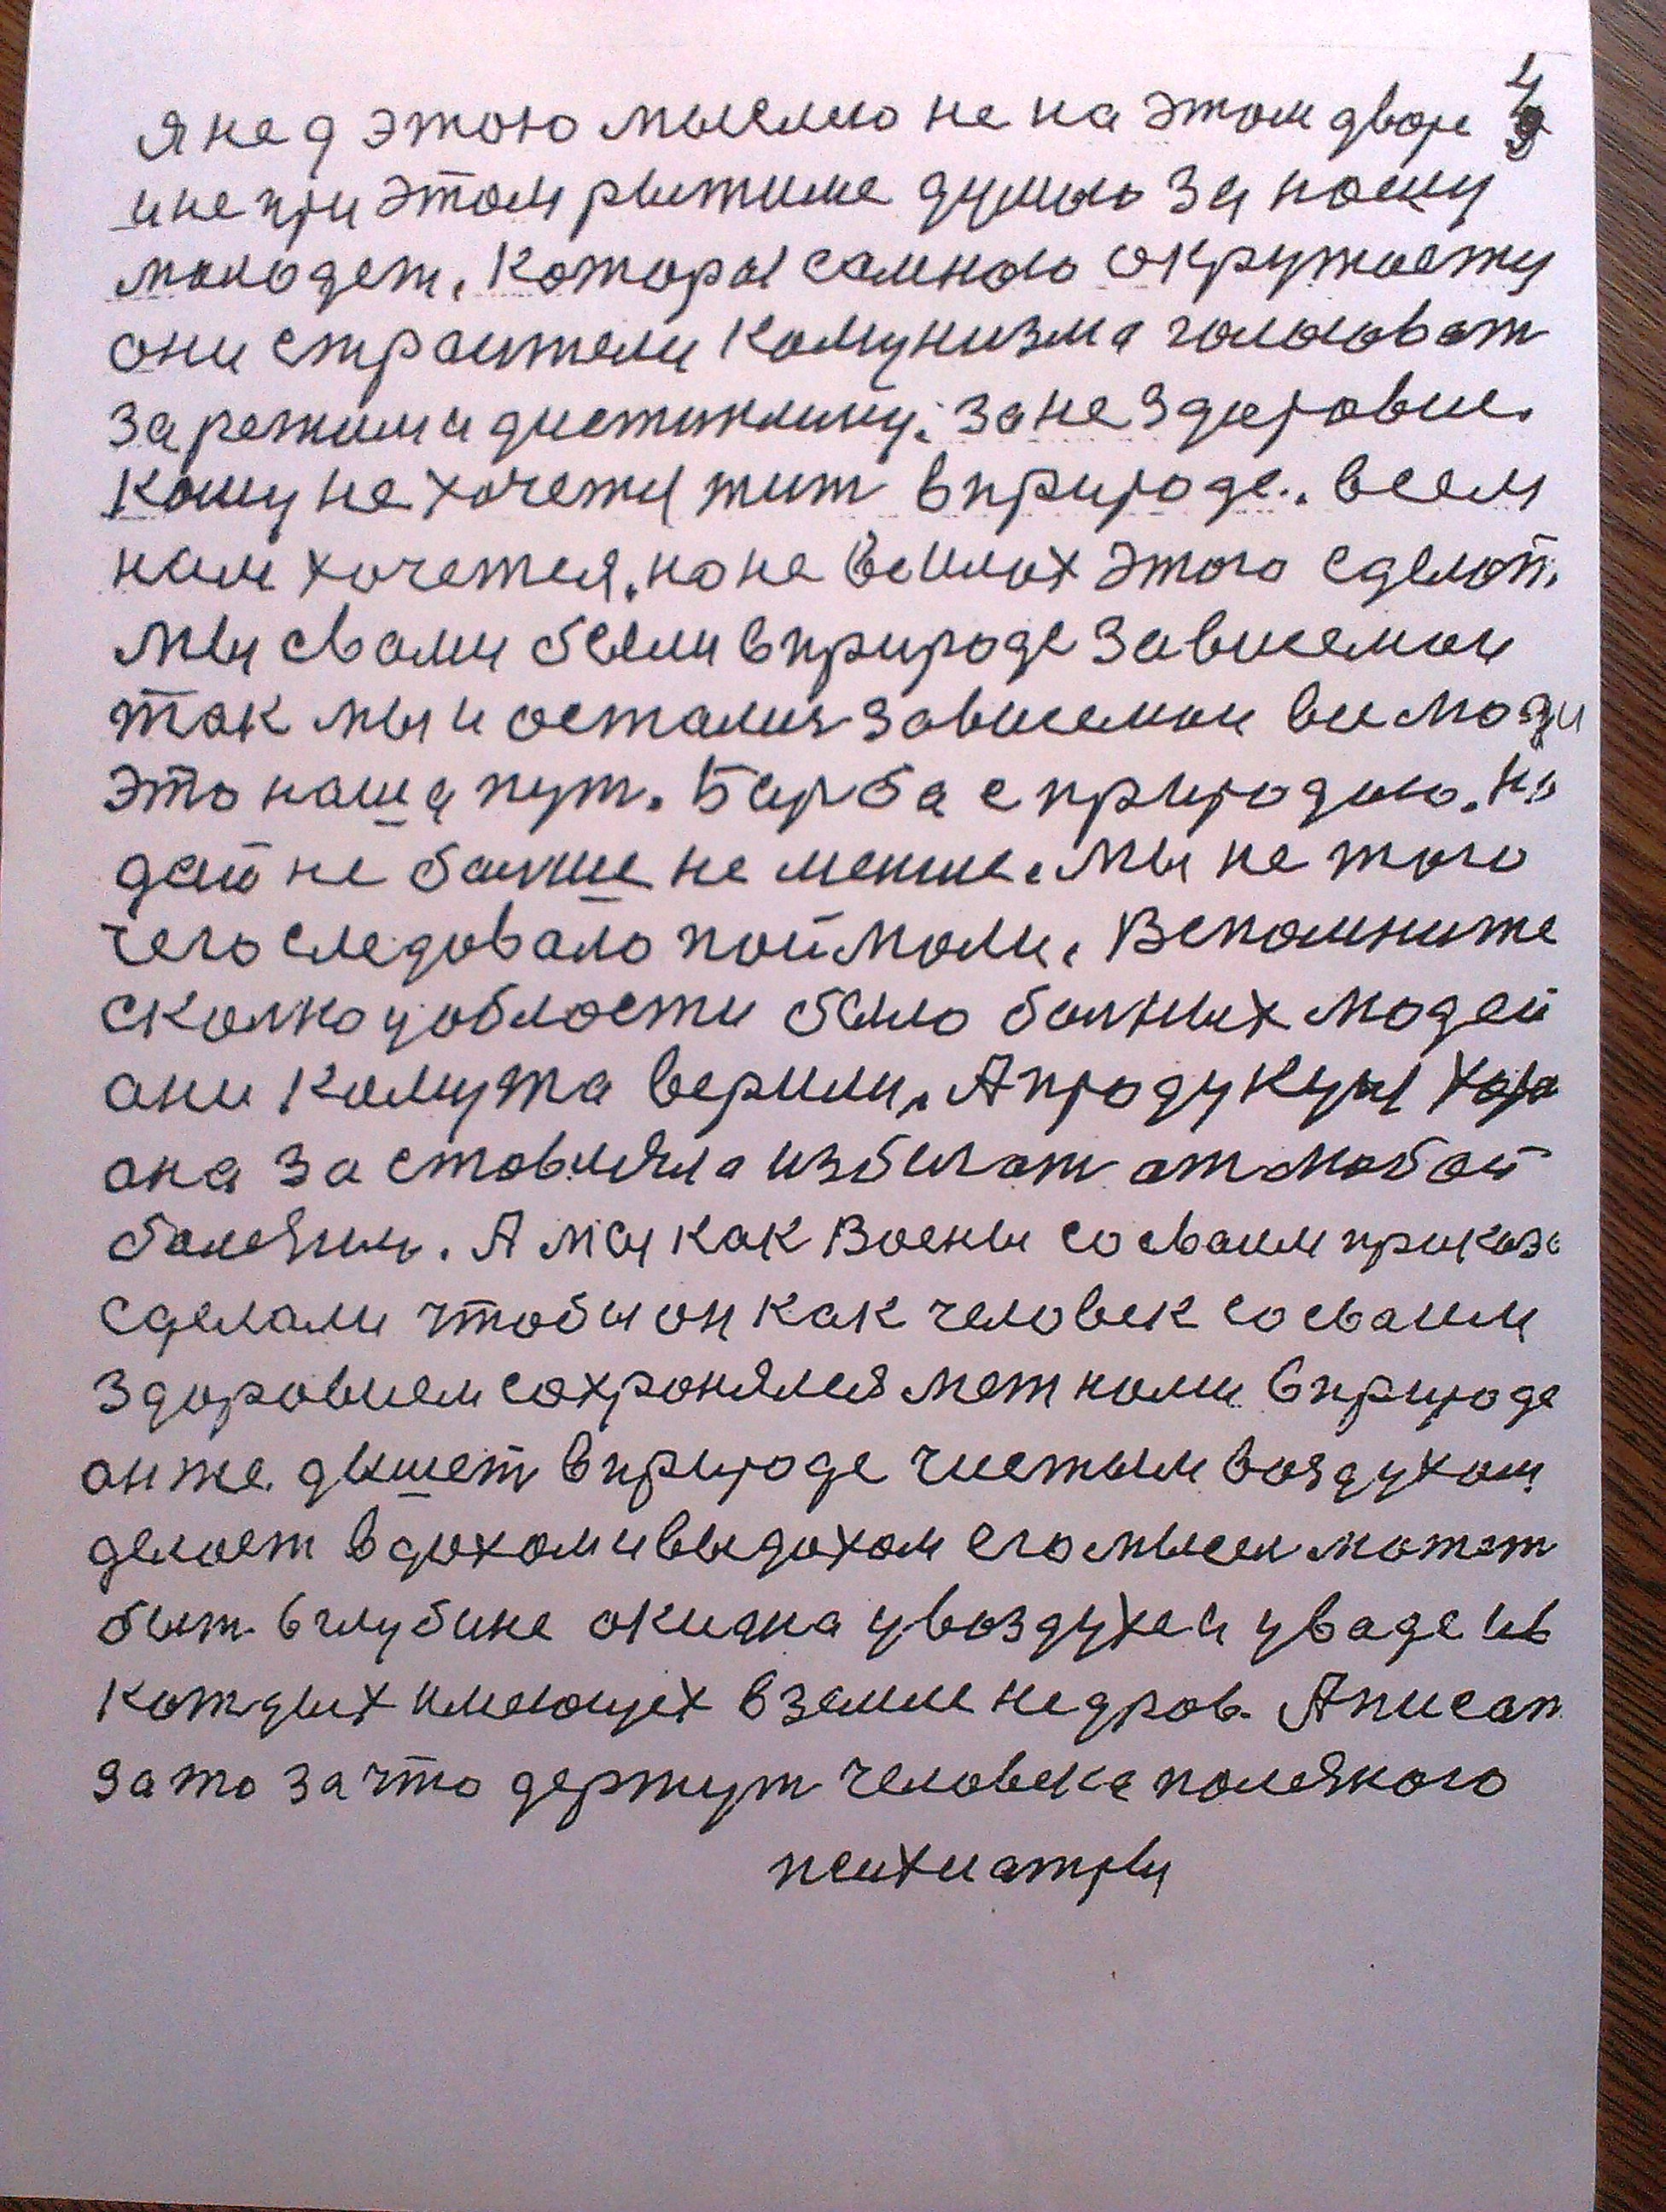 4
я над этою мыслию не на этом дворе
и не при этом рыжиме думаю за нашу
молодеж. Которы самною окружаетя
они строители Комунизма галасоват
за режим и дистиплину. за не здаровие.
Кому не хочетя жит в природе. всем
нам хочетея. но не всилах этого сделат.
Мы свами были в природе зависемои
так мы и осталия зависемои вси люди
это наша пут. Барба с природою.
дай не балше не менше. Мы не того
чего следовало поймали. Вспомните
сколко у области было балных людей
они кому та верили. А продукцы
она заставляла избигат от любой
болезни. А мы как Воены со сваим
сделали чтобы он как человек со сваим
здоровием сохронялся меж нами в природе
он же дышет в природе чистым воздухом
делает вдохом и выдохом его мысел можэт
быт в глубине окияна у воздухе и у ваде ив
каждых имеющех в земле недров. А писат
за то за что держут человека полезного
психиатры